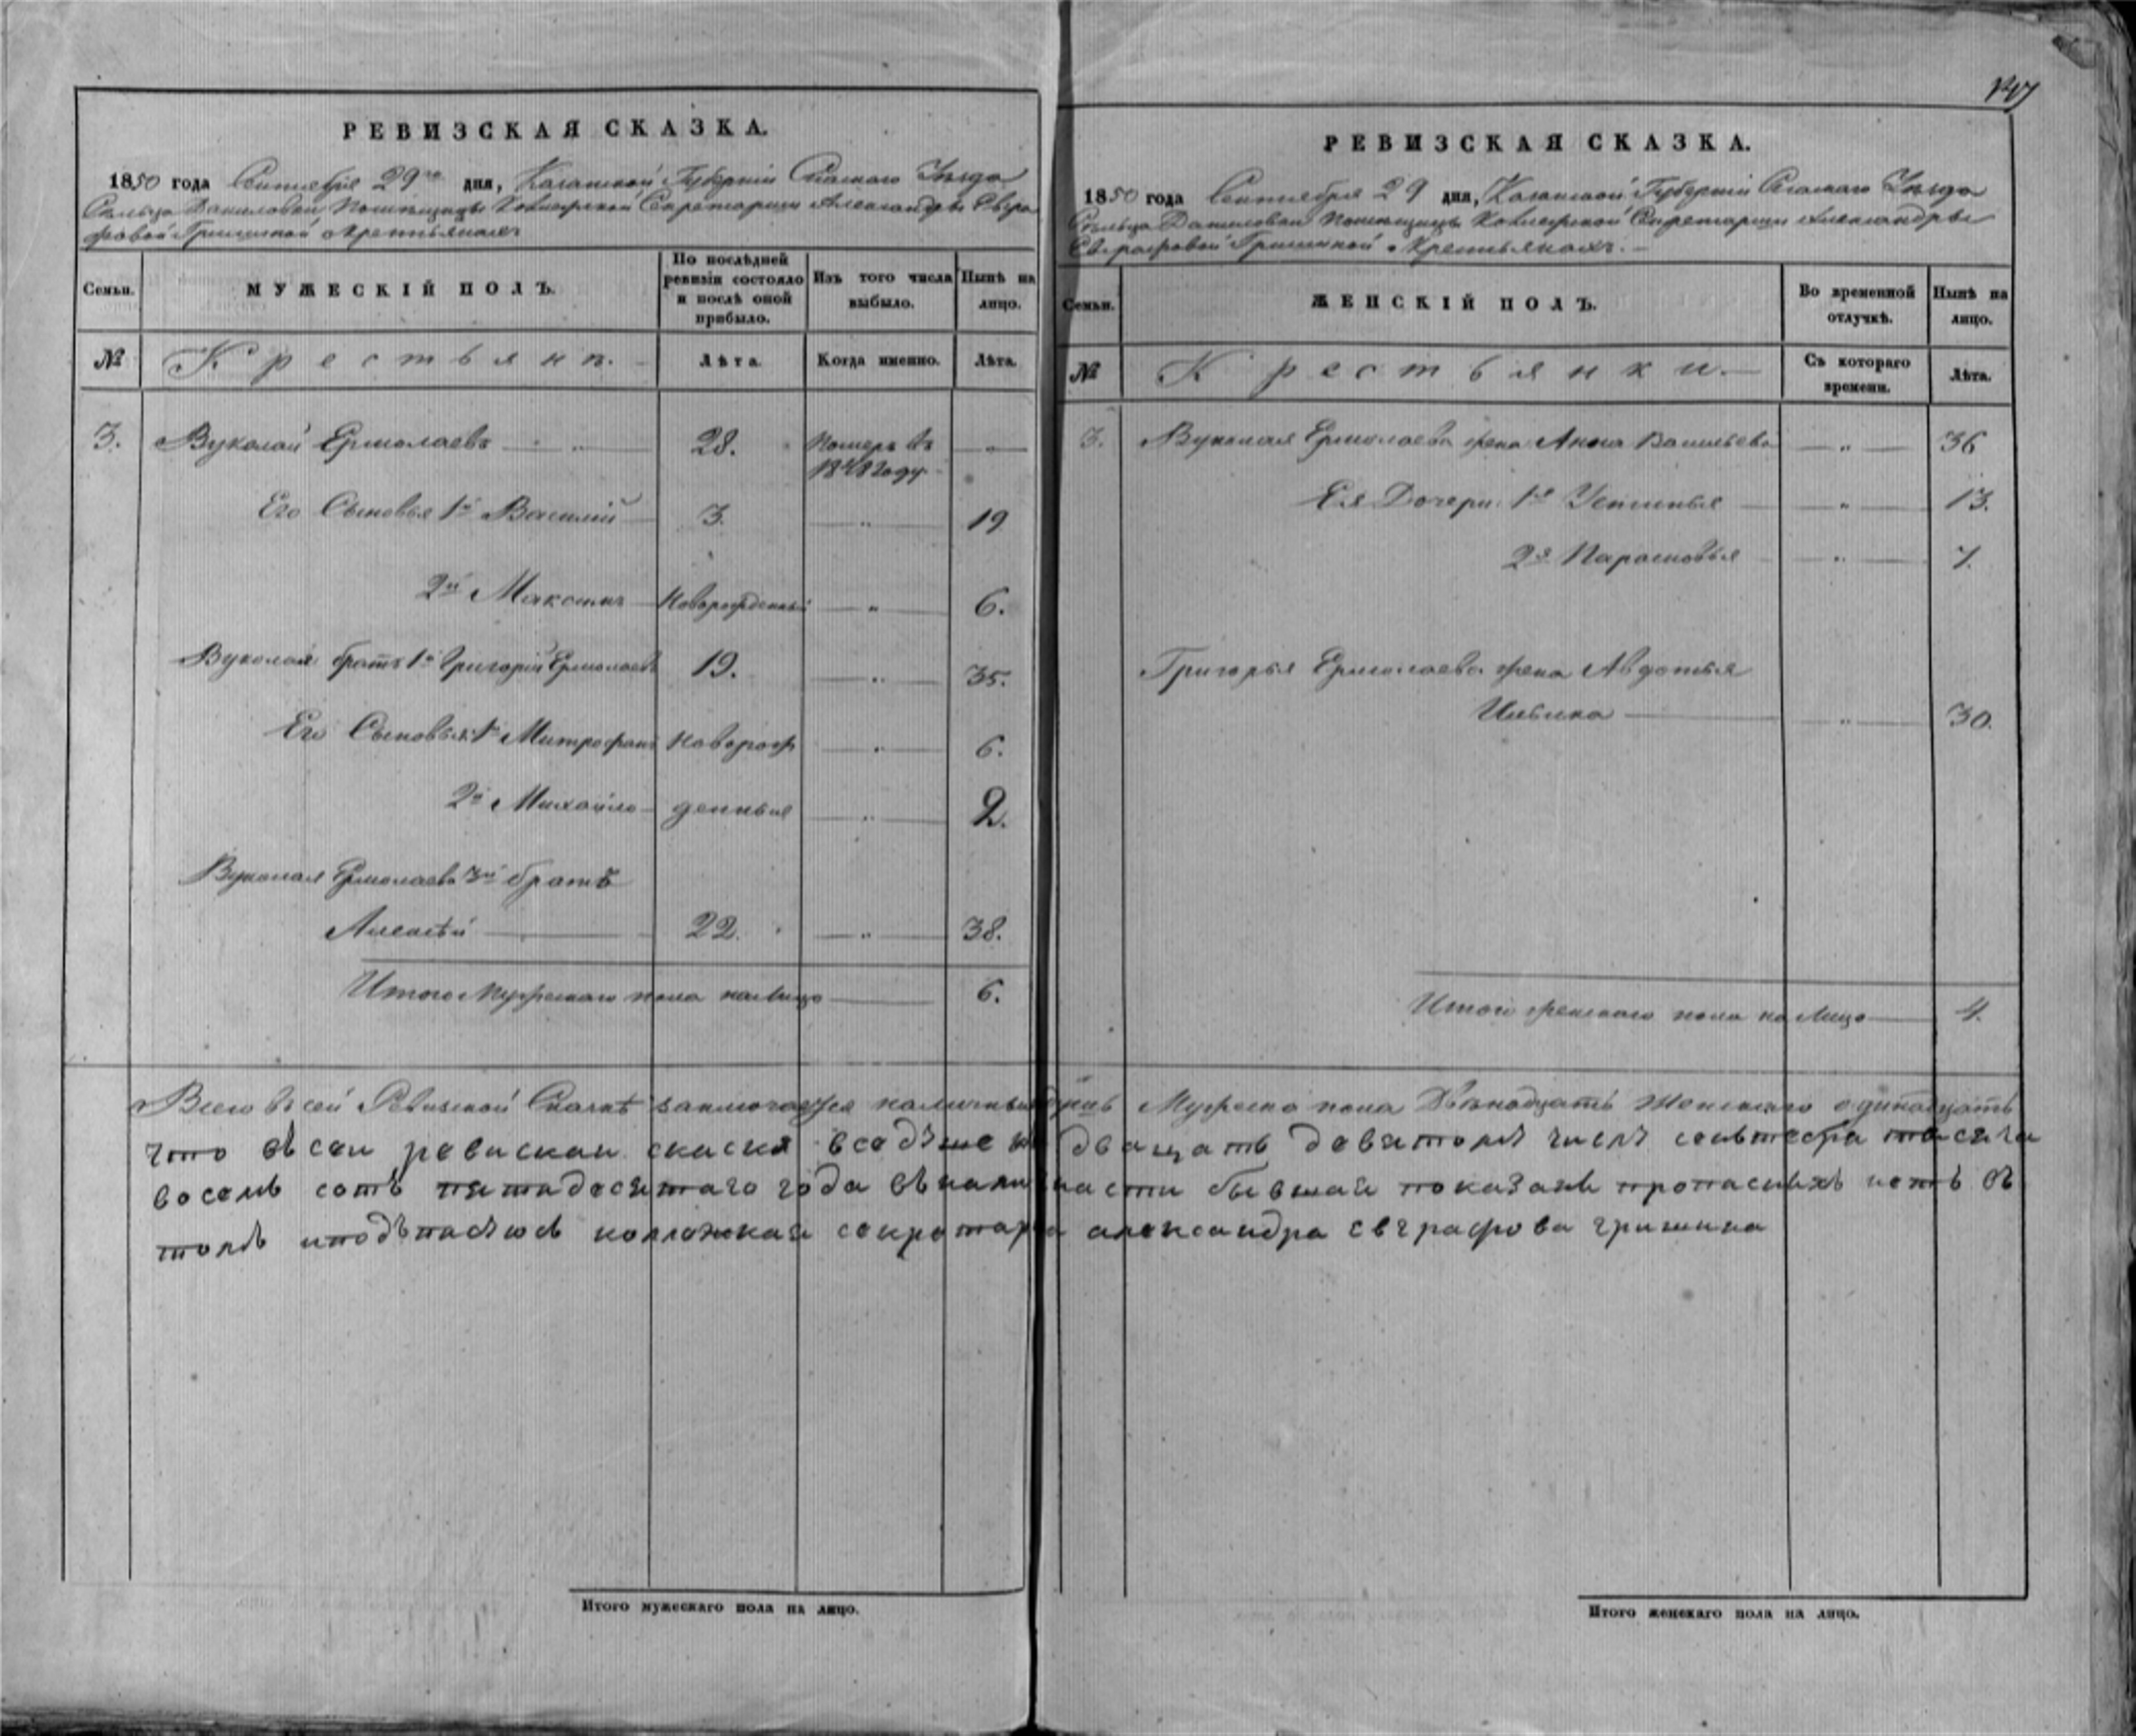 РЕВИЗСКАЯ СКАЗКА.
1850 года Сентября 29го дня, Казанской Губерніи Спаскаго Уѣзда
Сельца Даниловки Помѣщицы Коллежской Секретарши Александры Евгра
фовой Гришиной Крестьянахъ
Семьи.
МУЖЕСКІЙ ПОЛЪ.
По послѣдней ревизіи состояло и послѣ оной прибыло.
Изъ того числа выбыло.
Нынѣ на лицо.
№
Крестьянъ.
Лѣта.
Когда именно.
Лѣта.
3. Вуколай Ермолаевъ — " 28. Померъ въ — " —
1848 году
Его Сыновья 1й Василій — 3. — " — 19
2й Максимъ — Новорожденный — " — 6.
Вуколая братъ 1й Григорій Ермолаевъ 19. — " — 35.
Его Сыновья: 1й Митрофанъ Новорож — " — 6.
2й Михайло — денные — " — 2.
Вуколая Ермолаева 3й братъ
Алексѣй — 22. — " — 38.
Итого Мужескаго пола на лицо — 6.
Итого мужескаго пола на лицо.
РЕВИЗСКАЯ СКАЗКА.
1850 года Сентября 29 дня, Казанской Губерніи Спаскаго Уѣзда
Сельца Даниловки Помѣщицы Коллежской Секретарши Александры
Евграфовой Гришиной Крестьянахъ. —
Семьи.
ЖЕНСКІЙ ПОЛЪ.
Во временной отлучкѣ.
Нынѣ на лицо.
№
Крестьянки. —
Съ котораго времени.
Лѣта.
3. Вуколая Ермолаева жена Анна Васильева — " — 36
Ея Дочери: 1я Устинья — " — 13.
2я Парасковья — " — 7.
Григорья Ермолаева жена Авдотья
— " — 30.
Итого женскаго пола на лицо — 4.
Всего въ сей Ревизской Сказкѣ заключается наличныхъ душъ Мужеска пола Двѣнадцать Женскаго одинадцать
что въ сеи ревискаи скаски всѣ двацать девятомъ числѣ сенътебра тысяча
восемь сотъ пятадесятаго года въ наличнасти бывшаи показаны пропасныхъ нетъ въ
томъ иподъпасуюсь коллежская секретарша александра евграфова гришина
Итого женскаго пола на лицо.